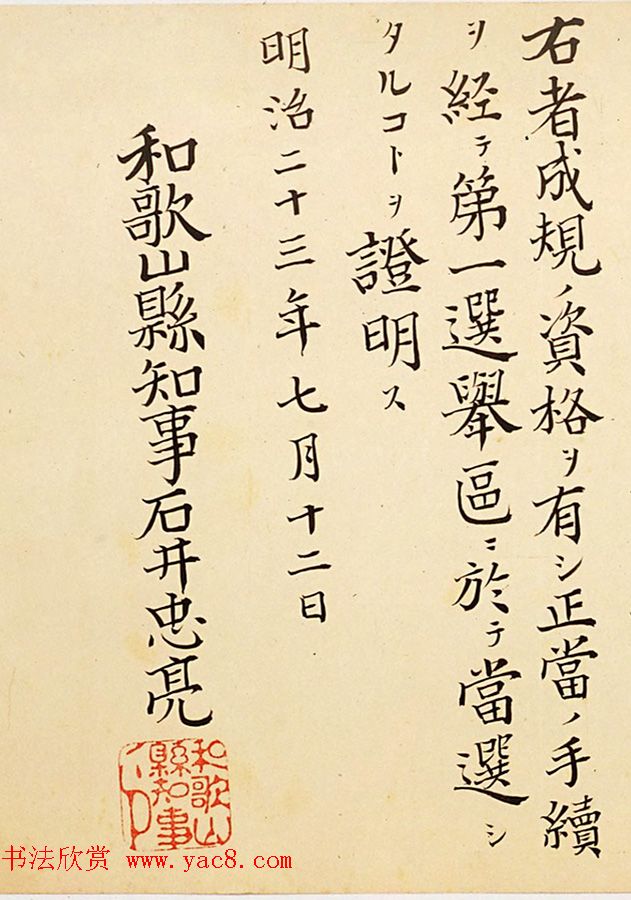 右者成規ノ資格ヲ有シ正當ノ手續
ヲ経テ第一選擧區ニ於テ當選シ
タルコトヲ證明ス
明治二十三年七月十二日
和歌山縣知事石井忠亮
和歌山
縣知事
印
书法欣赏 www.yac8.com